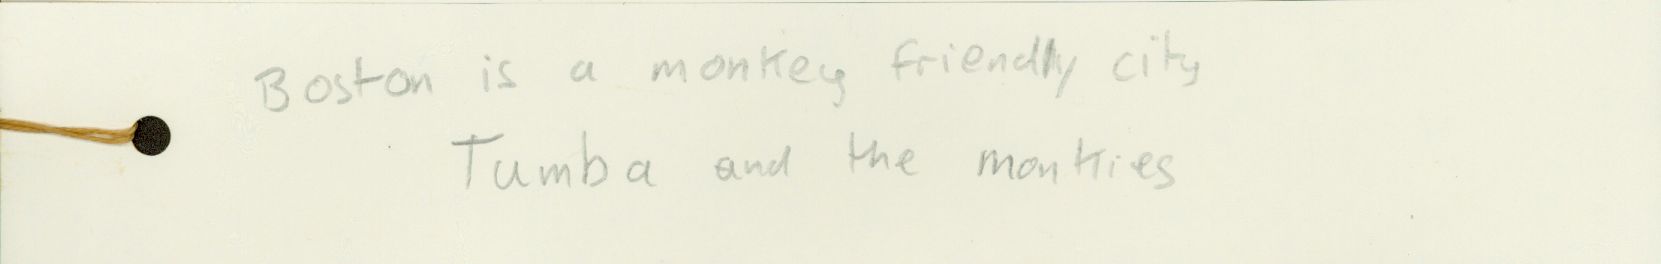 Boston is a monkey friendly city
Tumba and the monkies